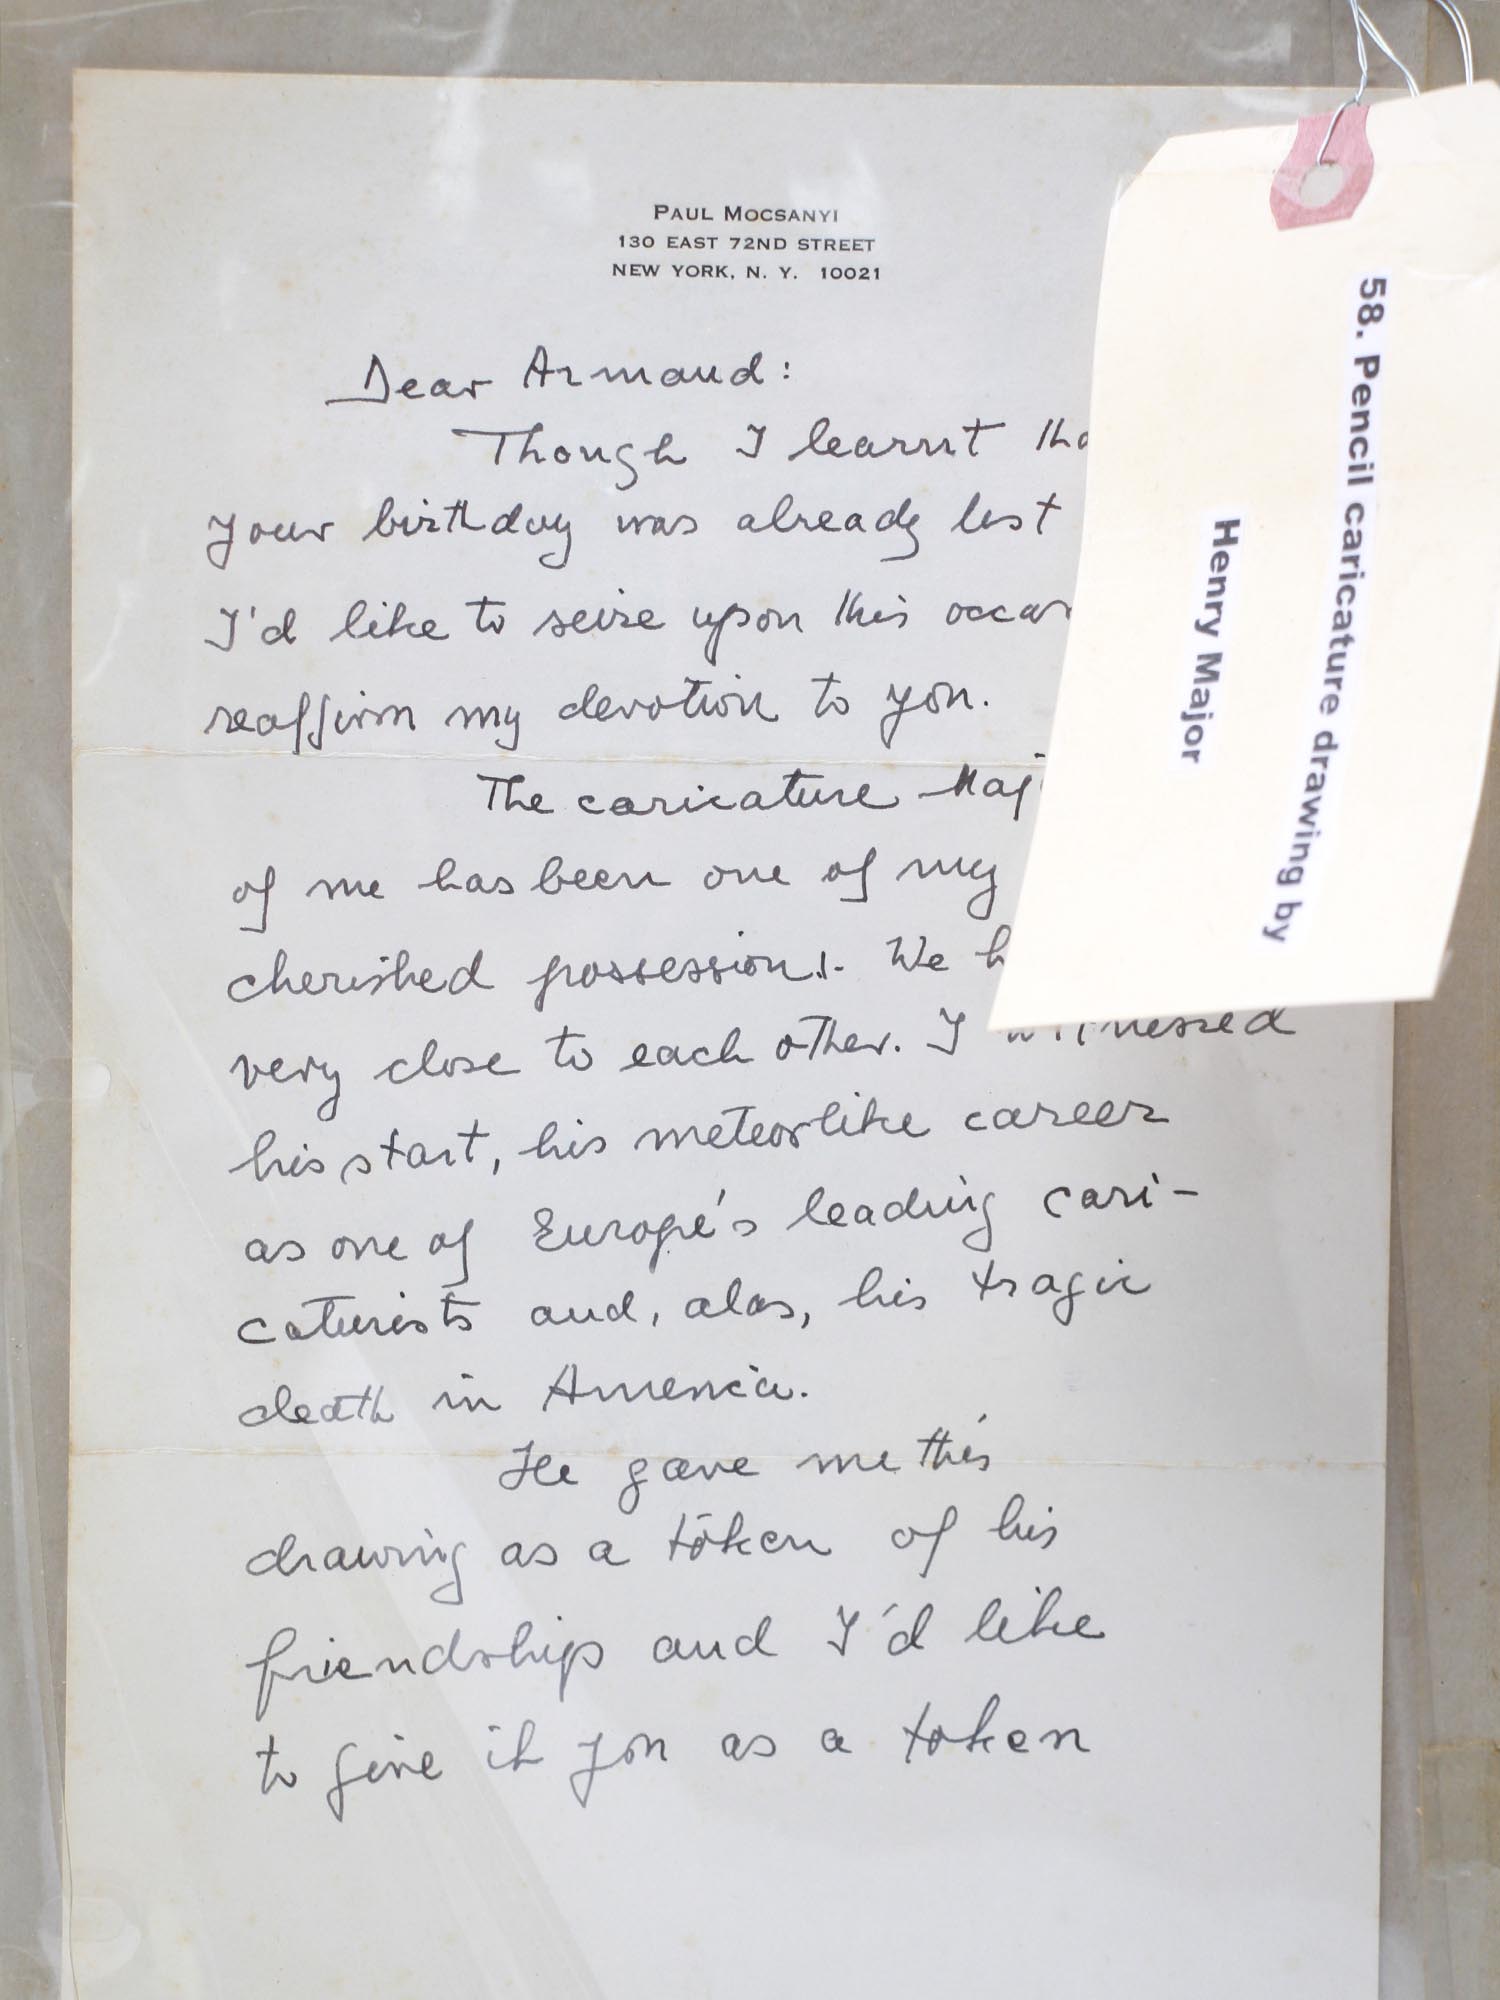 PAUL MOCSANYI
130 EAST 72ND STREET
NEW YORK, N. Y. 10021
Dear Armand:
Though I learnt
your birthday was already last
I'd like to seize upon this
reaffirm my devotion to you.
The caricature
of me has been one of my
cherished possessions. We
very close to each other. I witnessed
his start, his meteorlike career
as one of Europe's leading cari-
caturists and, alas, his tragic
death in America.
He gave me this
drawing as a token of his
friendship and I'd like
to give it you as a token
58. Pencil caricature drawing by
Henry Major